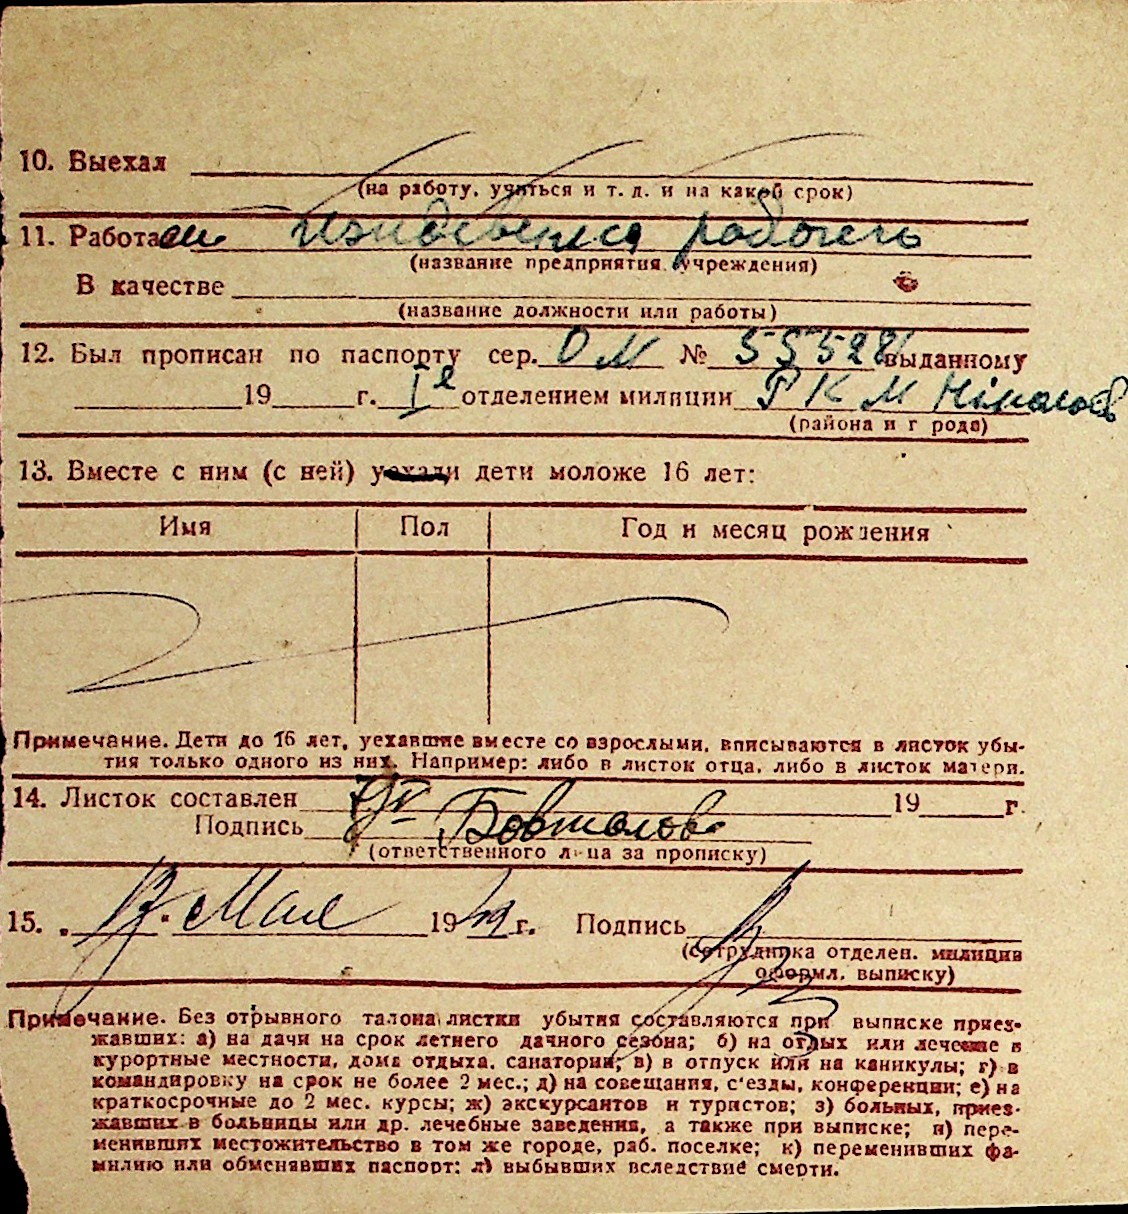 10. Выехал
(на работу, учиться и т. д. и на какой срок)
11. Работал Иждевенка рабочего
(название предприятия, учреждения)
В качестве
(название должности или работы)
12. Был прописан по паспорту сер. ОМ № 555281 выданному
19 г. I отделением милиции РКМ Ніколаев
(района и города)
13. Вместе с ним (с ней) уехали дети моложе 16 лет:
Имя Пол Год и месяц рождения
Примечание. Дети до 16 лет, уехавшие вместе со взрослыми, вписываются в листок убы-
тия только одного из них. Например: либо в листок отца, либо в листок матери.
14. Листок составлен 19 г.
Подпись
(ответственного лица за прописку)
15. „ Мая 19 г. Подпись
(сотрудника отделен. милиции
оформл. выписку)
Примечание. Без отрывного талона листки убытия составляются при выписке приез-
жавших: а) на дачи на срок летнего дачного сезона; б) на отдых или лечение в
курортные местности, дома отдыха, санатории; в) в отпуск или на каникулы; г) в
командировку на срок не более 2 мес.; д) на совещания, с'езды, конференции; е) на
краткосрочные до 2 мес. курсы; ж) экскурсантов и туристов; з) больных, приез-
жавших в больницы или др. лечебные заведения, а также при выписке; и) пере-
менивших местожительство в том же городе, раб. поселке; к) переменивших фа-
милию или обменявших паспорт; л) выбывших вследствие смерти.